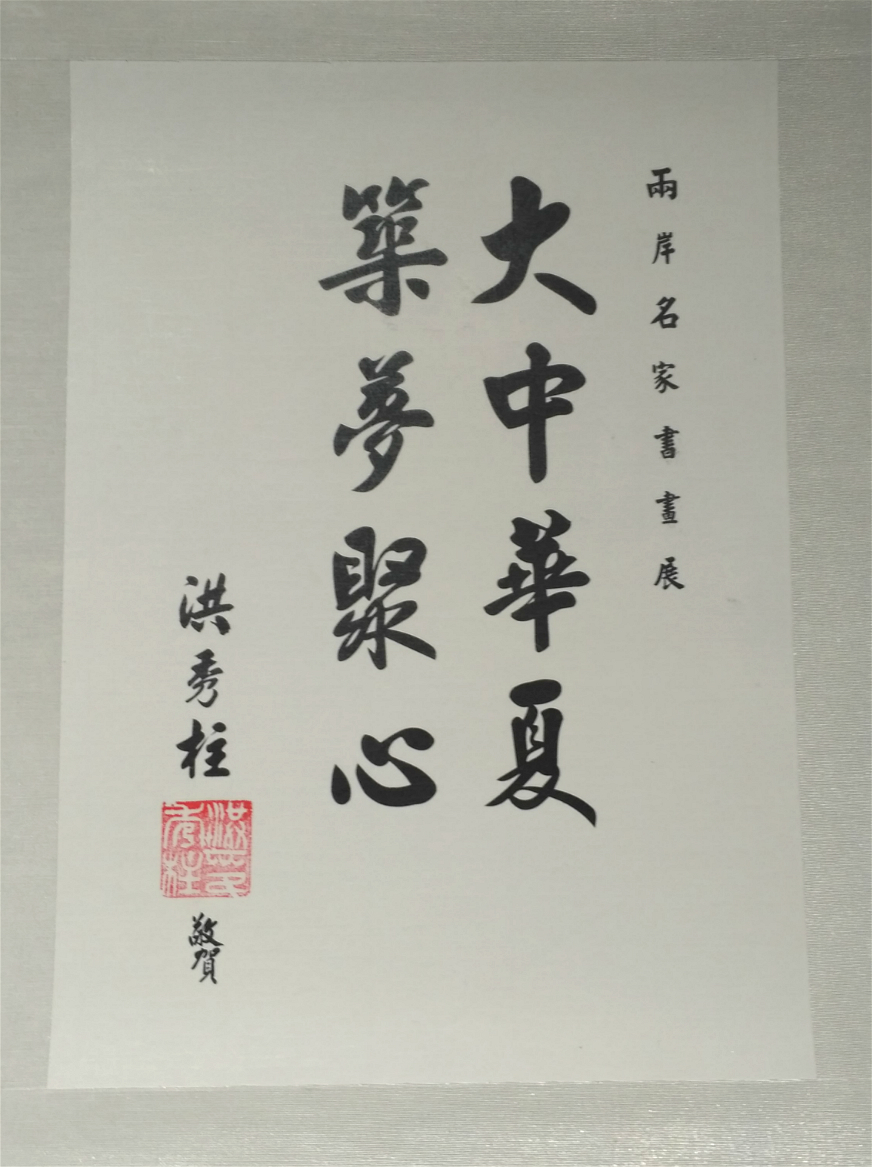 兩岸名家書畫展
大中華夏
築夢聚心
洪秀柱
洪秀柱印
敬賀